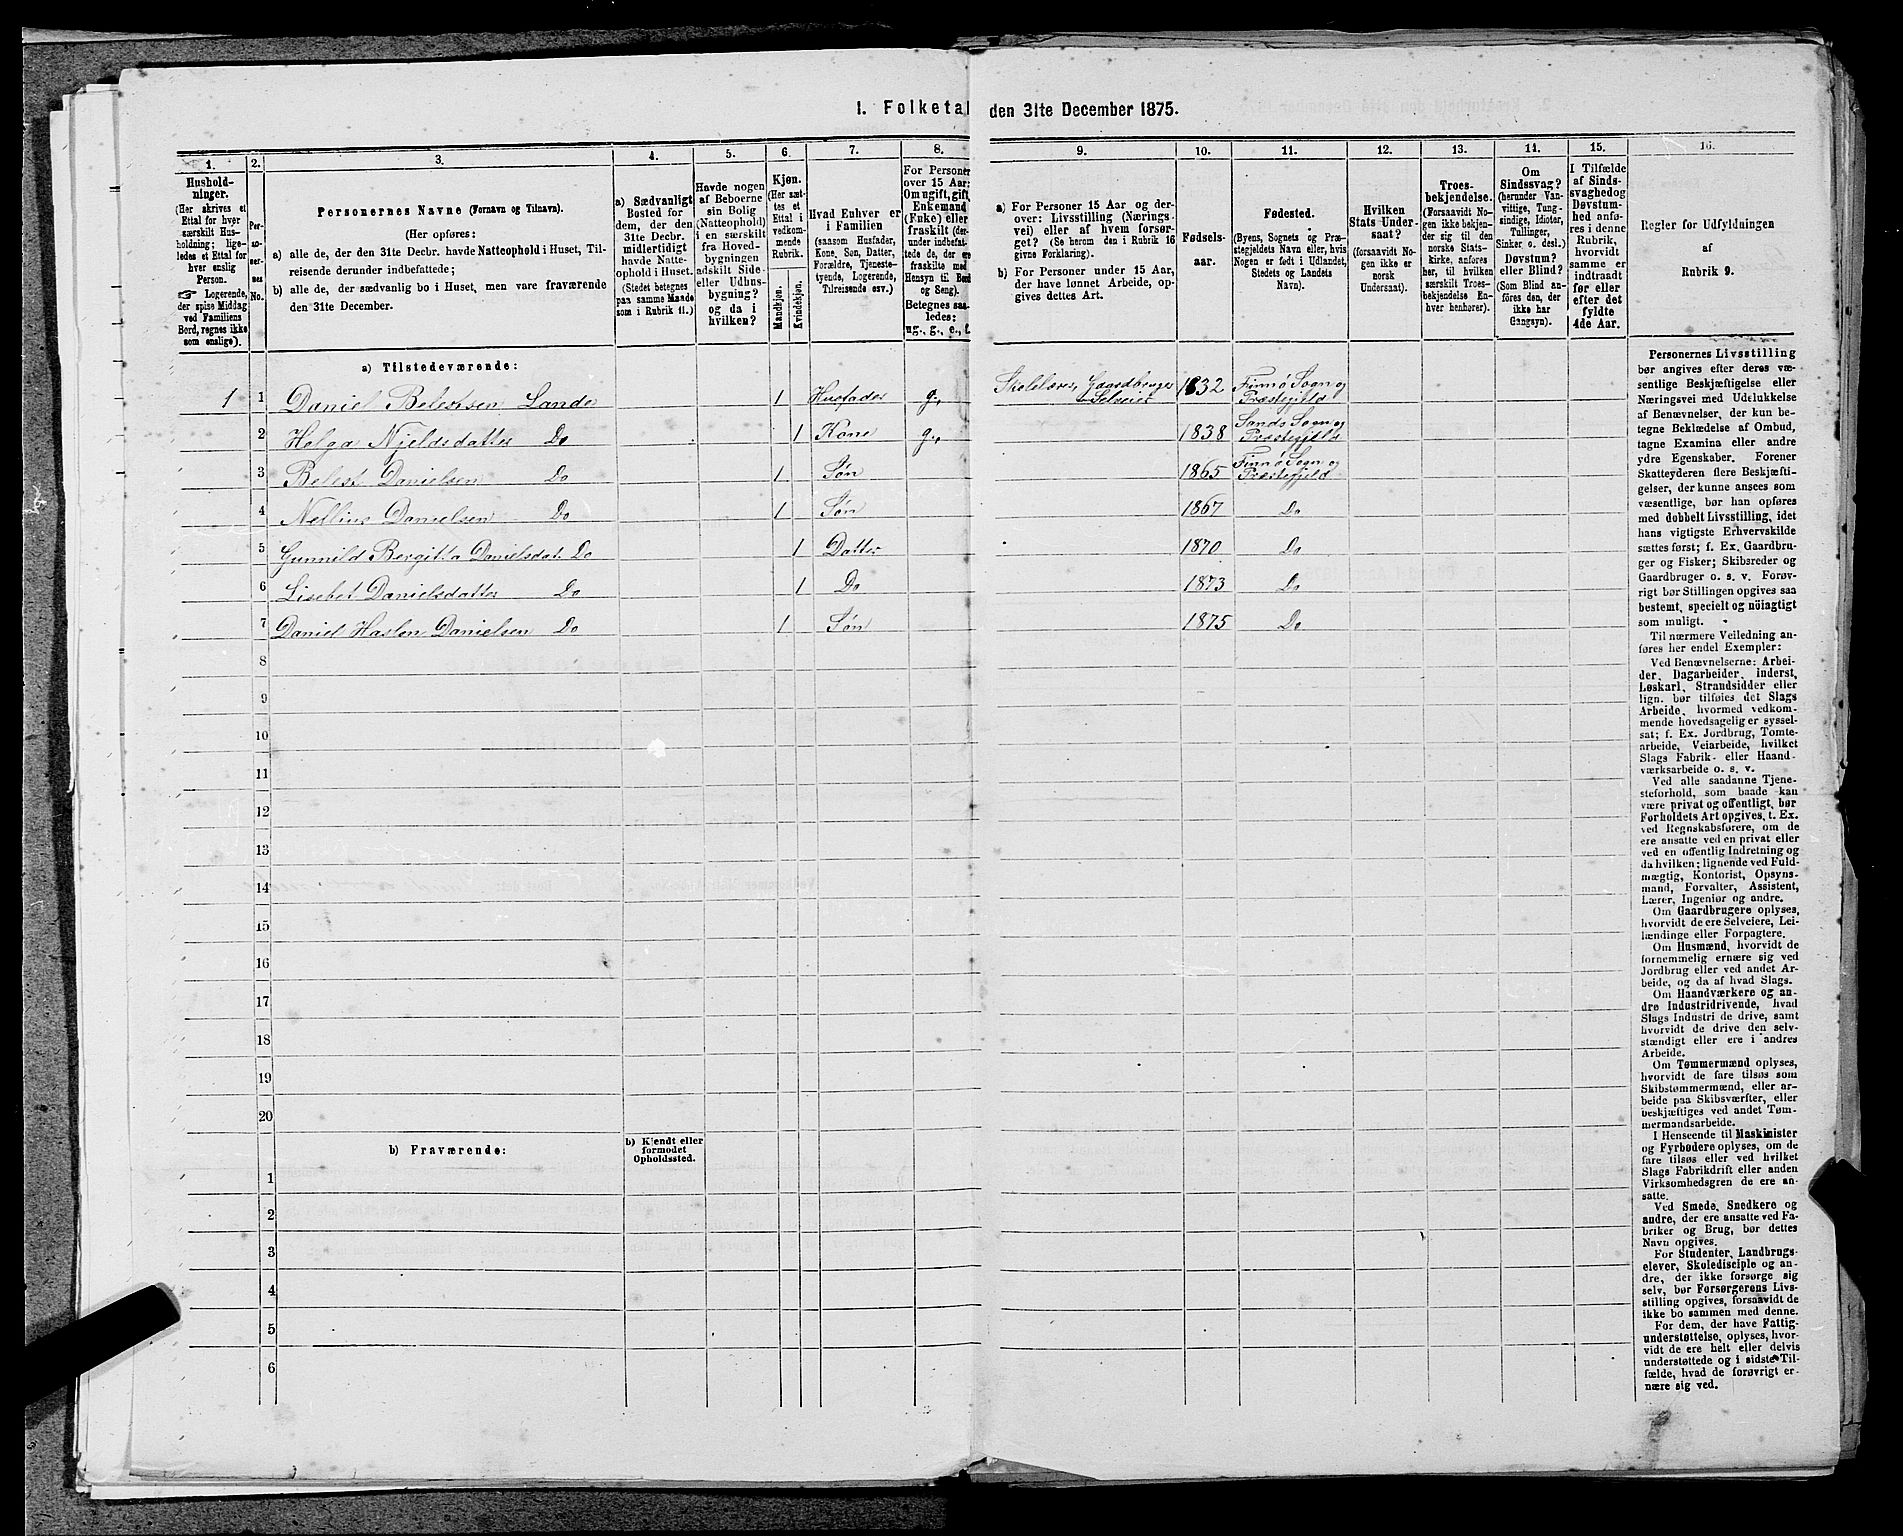 1. Folketal den 31te December 1875.
1. 2. 3. 4. 5. 6. 7. 8. 9. 10. 11. 12. 13. 14. 15. 16.
Hushold-
ninger.
(Her skrives et
Ettal for hver
særskilt Hus-
holdning; lige-
ledes et Ettal for
hver enslig
Person.
☞ Logerende,
der spise Middag
ved Familiens
Bord, regnes ikke
som enslige).
Per-
so-
ner-
nes
No.
Personernes Navne (Fornavn og Tilnavn).
(Her opføres:
a) alle de, der den 31te Decbr. havde Natteophold i Huset, Til-
reisende derunder indbefattede;
b) alle de, der sædvanlig bo i Huset, men vare fraværende
den 31te December.
a) Sædvanligt
Bosted for
dem, der den
31te Decbr.
midlertidigt
havde Natte-
ophold i Huset.
(Stedet betegnes
paa samme Maade
som i Rubrik 11.)
Havde nogen
af Beboerne
sin Bolig
(Natteophold)
i en særskilt
fra Hoved-
bygningen
adskilt Side-
eller Udhus-
bygning?
og da i
hvilken?
Kjøn.
(Her sæt-
tes et
Ettal i
vedkom-
mende
Rubrik.
Mandkjøn.
Kvindekjøn.
Hvad Enhver er
i Familien
(saasom Husfader,
Kone, Søn, Datter,
Forældre, Tjeneste-
tyende, Logerende,
Tilreisende osv.)
For Personer
over 15 Aar:
Om ugift, gift,
Enkemand
(Enke) eller
fraskilt (der-
under indbefat-
tede de, der ere
fraskilte med
Hensyn til Bord
og Seng).
Betegnes saa-
ledes:
ug., g., e., f.
a) For Personer 15 Aar og der-
over: Livsstilling (Nærings-
vei) eller af hvem forsør-
get? (Se herom den i Rubrik 16
givne Forklaring).
b) For Personer under 15 Aar,
der have lønnet Arbeide, op-
gives dettes Art.
Fødsels-
aar.
Fødested.
(Byens, Sognets og Præ-
stegjeldets Navn eller, hvis
Nogen er født i Udlandet,
Stedets og Landets
Navn).
Hvilken
Stats Under-
saat?
(forsaavidt No-
gen ikke er
norsk
Undersaat).
Troes-
bekjendelse.
(Forsaavidt No-
gen ikke bekjen-
der sig til den
norske Stats-
kirke, anføres
her, til hvilken
særskilt Troes-
bekjendelse En-
hver henhører).
Om
Sindssvag?
(herunder Van-
vittige, Tung-
sindige, Idioter,
Tullinger,
Sinker o. desl.)
Døvstum?
eller Blind?
(Som Blind an-
føres den, der
ikke har
Gangsyn).
I Tilfælde
af Sinds-
svaghed og
Døvstum-
hed anfø-
res i denne
Rubrik,
hvorvidt
samme er
indtraadt
før eller
efter det
fyldte
4de Aar.
Regler for Udfyldningen
af
Rubrik 9.
a) Tilstedeværende:
1 1 Daniel Belestsen Lande 1 Husfader g., Skolelærer, Gaardbruger Selveier 1832 Finnø Sogn og Præstegjeld
2 Helga Njeldsdatter Do 1 Kone g., 1838 Sands Sogn og Præstegjeld
3 Belest Danielsen Do 1 Søn 1865 Finnø Sogn og Præstegjeld
4 Nellius Danielsen Do 1 Søn 1867 Do
5 Gunnild Bergitta Danielsdat. Do 1 Datter 1870 Do
6 Lisebet Danielsdatter Do 1 Do 1873 Do
7 Daniel Haslen Danielsen Do 1 Søn 1875 Do
8
9
10
11
12
13
14
15
16
17
18
19
20
b) Fraværende:
b) Kjendt eller
formodet
Opholdssted.
1
2
3
4
5
6
Personernes Livsstilling
bør angives efter deres væ-
sentlige Beskjæftigelse eller
Næringsvei med Udelukkelse
af Benævnelser, der kun be-
tegne Beklædelse af Ombud,
tagne Examina eller andre
ydre Egenskaber. Forener
Skatteyderen flere Beskjæfti-
gelser, der kunne ansees som
væsentlige, bør han opføres
med dobbelt Livsstilling, idet
hans vigtigste Erhvervskilde
sættes først; f. Ex. Gaardbru-
ger og Fisker; Skibsreder og
Gaardbruger o. s. v. Forøv-
rigt bør Stillingen opgives saa
bestemt, specielt og nøiagtigt
som muligt.
Til nærmere Veiledning an-
føres her endel Exempler:
Ved Benævnelserne: Arbei-
der, Dagarbeider, inderst,
Løskarl, Strandsidder eller
lign. bør tilføies det Slags
Arbeide, hvormed vedkom-
mende hovedsagelig er syssel-
sat; f. Ex. Jordbrug, Tomte-
arbeide, Veiarbeide, hvilket
Slags Fabrik- eller Haand-
værksarbeide o. s. v.
Ved alle saadanne Tjene-
steforhold, som baade kan
være privat og offentligt, bør
Forholdets Art opgives, t. Ex.
ved Regnskabsførere, om de
ere ansatte ved en privat eller
ved en offentlig Indretning og
da hvilken; lignende ved Fuld-
mægtig, Kontorist, Opsyns-
mand, Forvalter, Assistent,
Lærer, Ingeniør og andre.
Om Gaardbrugere oplyses,
hvorvidt de ere Selveiere, Lei-
lændinge eller Forpagtere.
Om Husmænd, hvorvidt de
fornemmelig ernære sig ved
Jordbrug eller ved andet Ar-
beide, og da af hvad Slags.
Om Haandværkere og an-
dre Industridrivende, hvad
Slags Industri de drive, samt
hvorvidt de drive den selv-
stændigt eller ere i andres
Arbeide.
Om Tømmermænd oplyses,
hvorvidt de fare tilsøs som
Skibstømmermænd, eller ar-
beide paa Skibsværfter, eller
beskjæftiges ved andet Tøm-
mermandsarbeide.
I Henseende til Maskinister
og Fyrbødere oplyses, om de
fare tilsøs eller ved hvilket
Slags Fabrikdrift eller anden
Virksomhedsgren de ere an-
satte.
Ved Smede, Snedkere og
andre, der ere ansatte ved Fa-
briker og Brug, bør dettes
Navn opgives.
For Studenter, Landbrugs-
elever, Skoledisciple og an-
dre, der ikke forsørge sig
selv, bør Forsørgerens Livs-
stilling opgives, forsaavidt de
ikke bo sammen med denne.
For dem, der have Fattig-
understøttelse, oplyses, hvor-
vidt de ere helt eller delvis
understøttede og i sidste Til-
fælde, hvad de forøvrigt er-
nære sig ved.